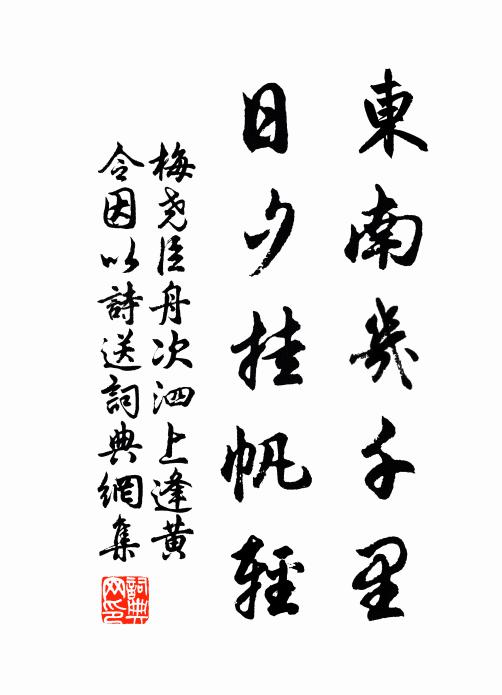 東南幾千里
日夕挂帆輕
梅堯臣舟次泗上逢黃
令因以詩送詞典網集
詞典網印